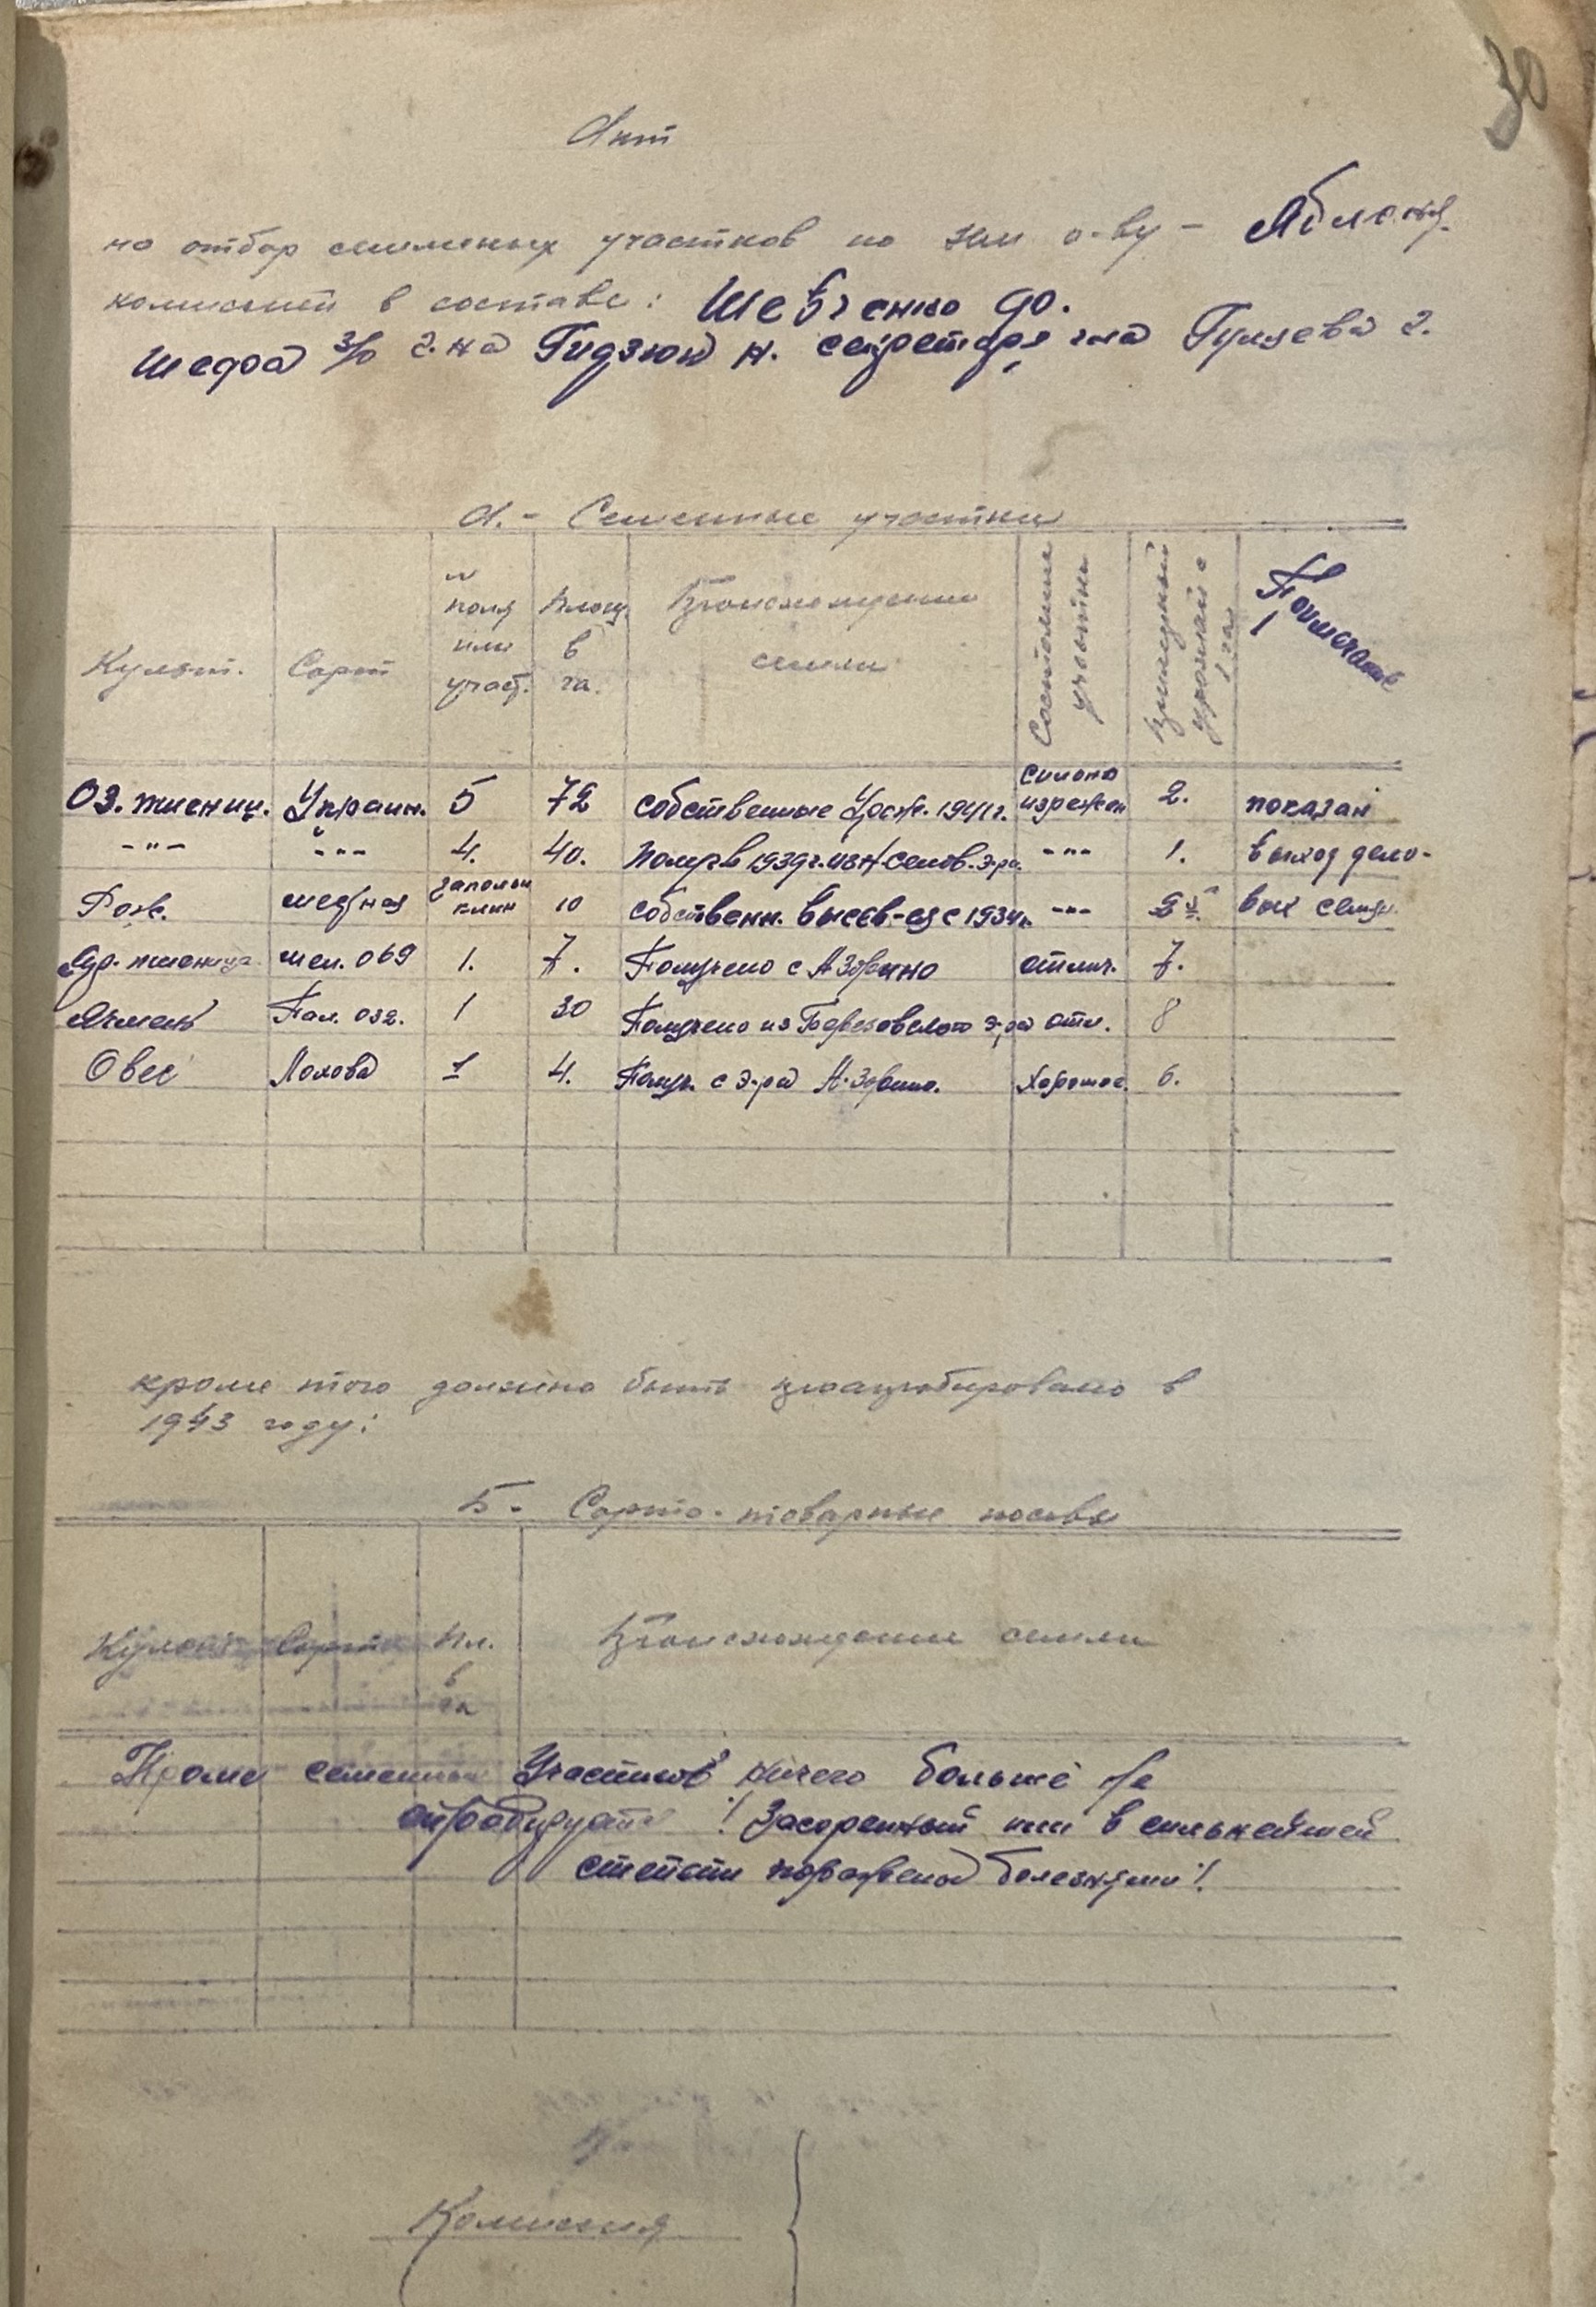 30
Акт
на отбор семенных участков по зем о-ву - Яблоня
комиссией в составе: Шевченко
Шефа з/о г.на Гидзюк н. секретаря г-на Гуляева г.
А. - Семенные участки
Культ. Сорт № поля или участ. Площ. в га. Происхождение семян Состояние участка Примерный урожай с 1 га Примечание
Оз. пшениц. Украин. 5 72 собственные Урож. 1941 г. сильно изрежен 2. показан
-"- -"- 4. 40. Получ в 1939 г. из -"- 1. выход дело-
Рожь. местная запольн клин 10 собственн. высев-ся с 1934 г. -"- 2 вых семян
Яр. пшеница мел. 069 1. 7. Получено с отлич. 7.
Ячмень Пал. 032. 1 30 Получено из Березовского отл. 8
Овес Лохова 1 4. Получ. с Хорошое. 6.
кроме того должно быть проапробировано в
1943 году:
Б. - Сорто-товарные посевы
Культ. Сорт Пл. в га Происхождение семян
Кроме семенных Участков ничего больше не
апробируется! Засоренный или в сильнейшей
степени поражена болезнями!
Комиссия